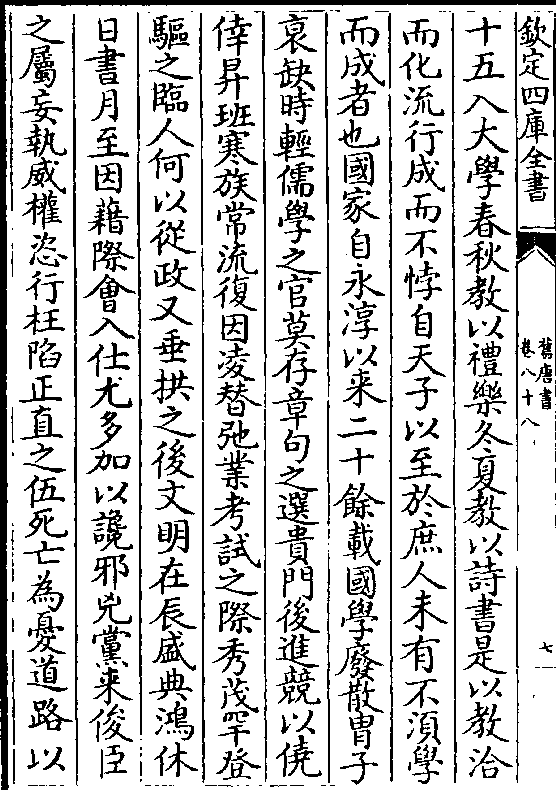 欽定四庫全書
舊唐書
卷八十八
七
十五入大學春秋教以禮樂冬夏教以詩書是以教洽
而化流行成而不悖自天子以至於庶人未有不湏學
而成者也國家自永淳以来二十餘載國學廢散胄子
衰缺時輕儒學之官莫存章句之選貴門後進競以僥
倖昇班寒族常流復因凌替弛業考試之際秀茂罕登
驅之臨人何以從政又垂拱之後文明在辰盛典鴻休
日書月至因藉際會入仕尤多加以讒邪兇黨来俊臣
之屬妄執威權恣行枉陷正直之伍死亡為憂道路以